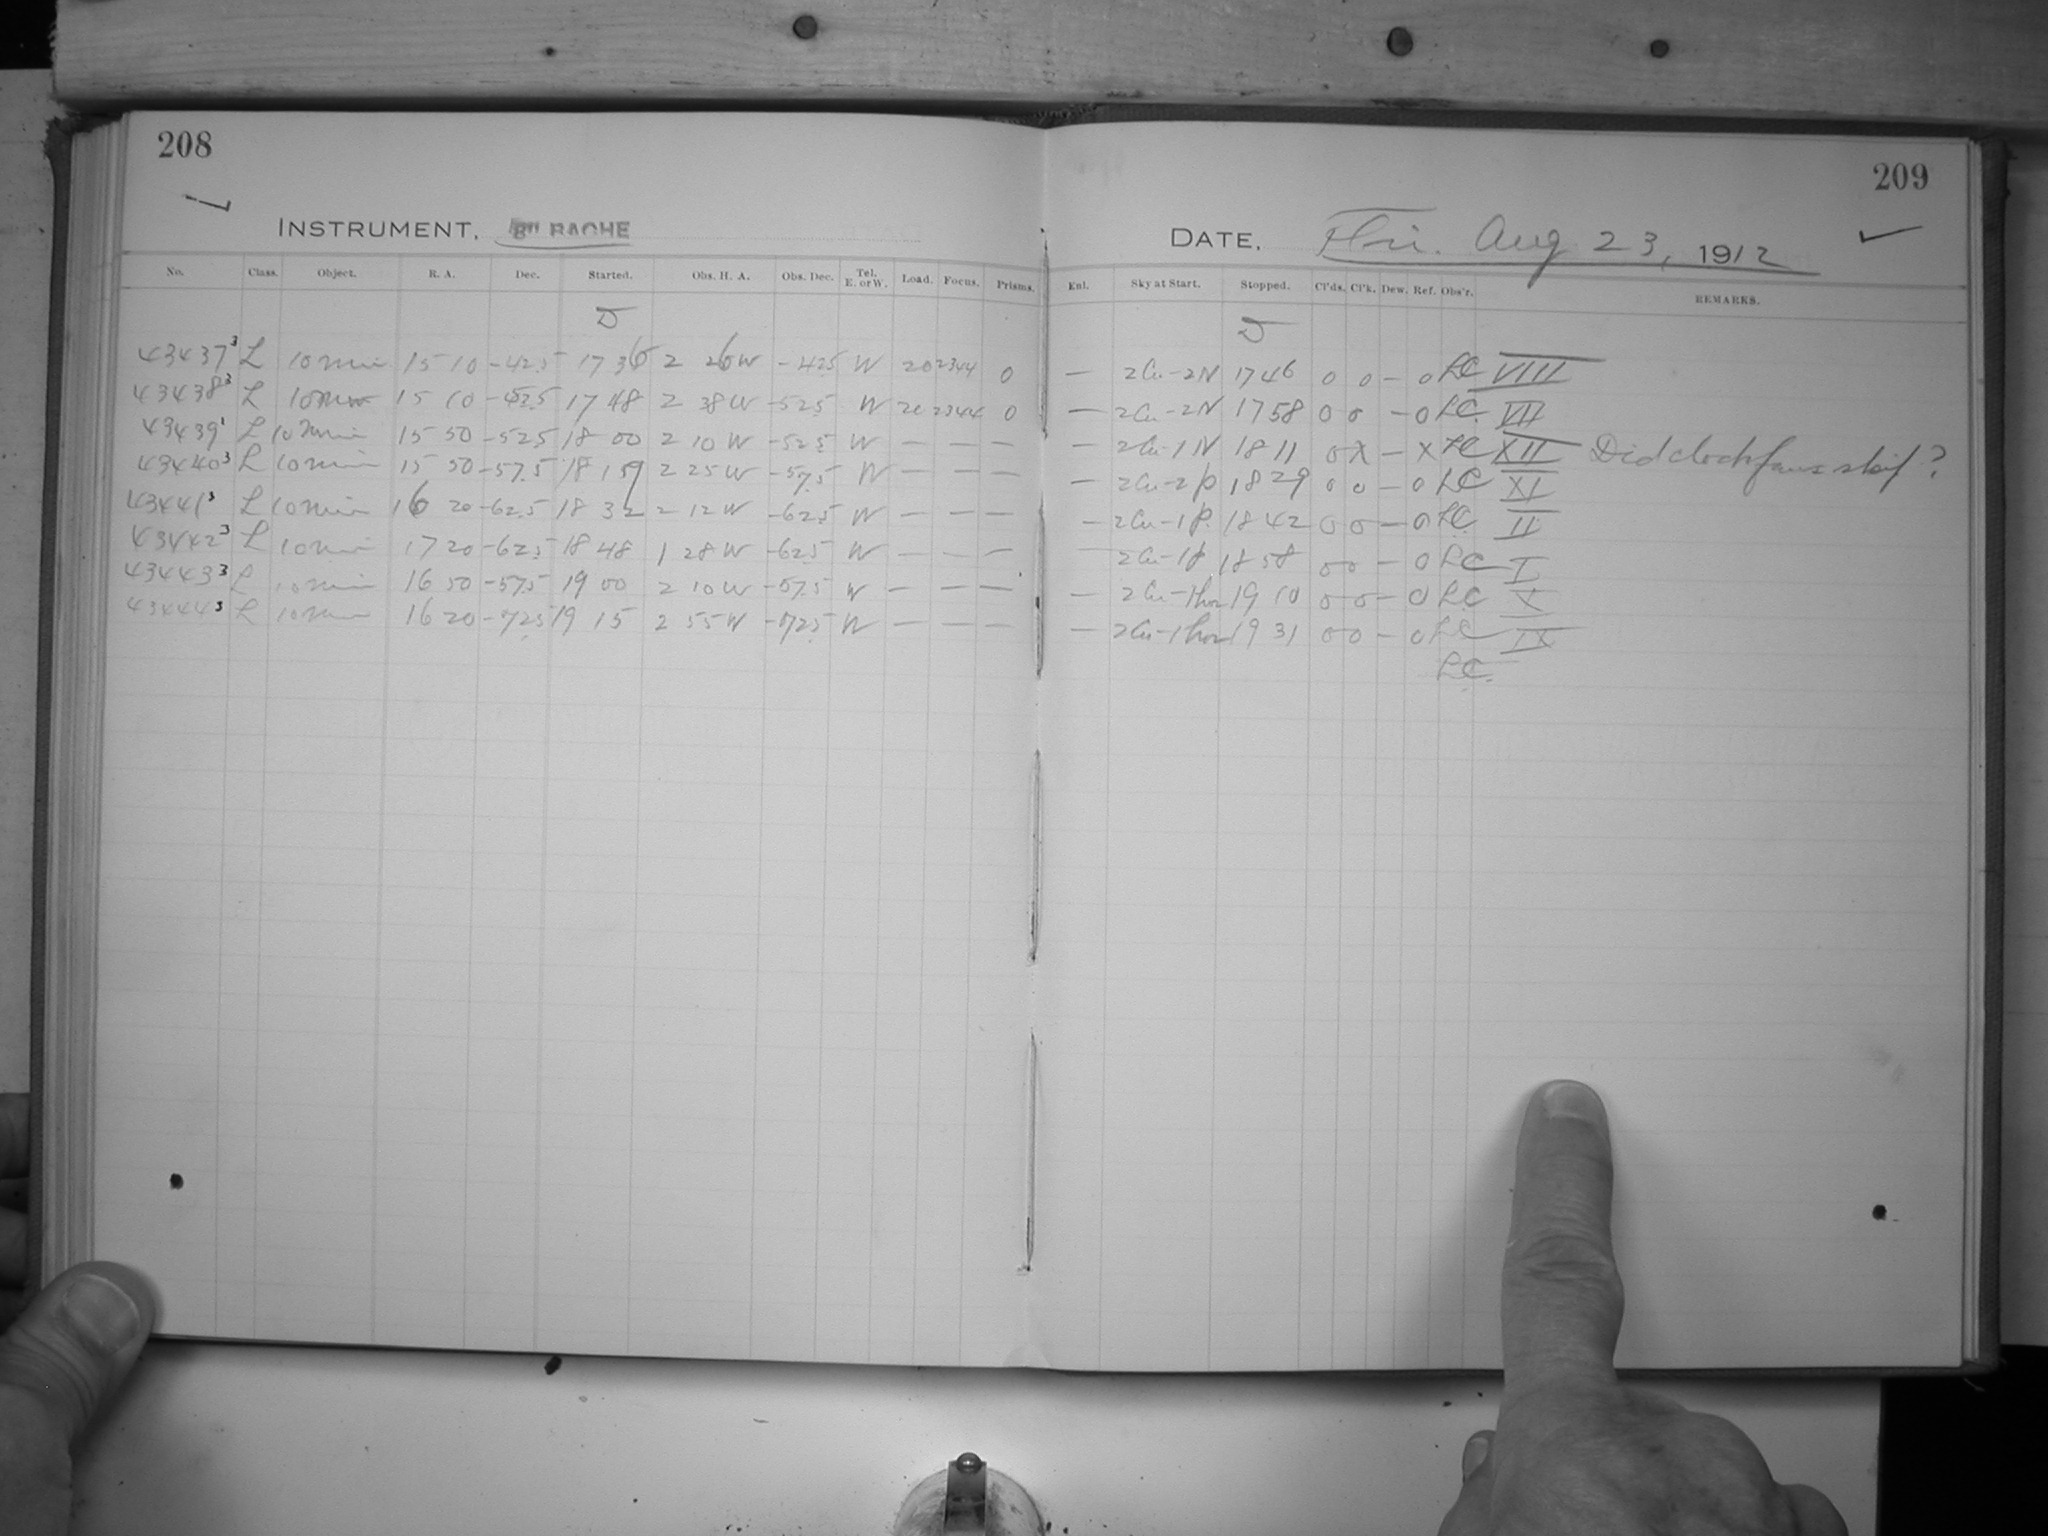 208
209
INSTRUMENT. 8" BACHE
DATE. Fri. Aug 23, 1912
No. Class. Object. R. A. Dec. Started. Obs. H. A. Obs. Dec. Tel. E. or W. Load. Focus. Prisms. Enl. Sky at Start. Stopped. Cl'ds. Cl'k. Dew. Ref. Obs'r. REMARKS.
43437³ L 10 min 15 10 -42.5 17 36 2 26 W -42.5 W 20 2344 0 — 2Cu-2N 17 46 0 0 — 0 LC VIII
43438³ L 10 min 15 10 -52.5 17 48 2 38 W -52.5 W 20 2344 0 — 2Cu-2N 17 58 0 0 — 0 LC VII
43439¹ L 10 min 15 50 -52.5 18 00 2 10 W -52.5 W — — — — 2Cu-1N 18 11 0 X — X LC XII Did clock skip ?
43440³ L 10 min 15 50 -57.5 18 19 2 25 W -57.5 W — — — — 2Cu-2p 18 29 0 0 — 0 LC XI
43441³ L 10 min 16 20 -62.5 18 32 2 12 W -62.5 W — — — — 2Cu-1p 18 42 0 0 — 0 LC II
43442³ L 10 min 17 20 -62.5 18 48 1 28 W -62.5 W — — — — 2Cu-1p 18 58 0 0 — 0 LC I
43443³ L 10 min 16 50 -57.5 19 00 2 10 W -57.5 W — — — — 2Cu-1hor 19 10 0 0 — 0 LC X
43444³ L 10 min 16 20 -72.5 19 15 2 55 W -72.5 W — — — — 2Cu-1hor 19 31 0 0 — 0 LC IX
LC.